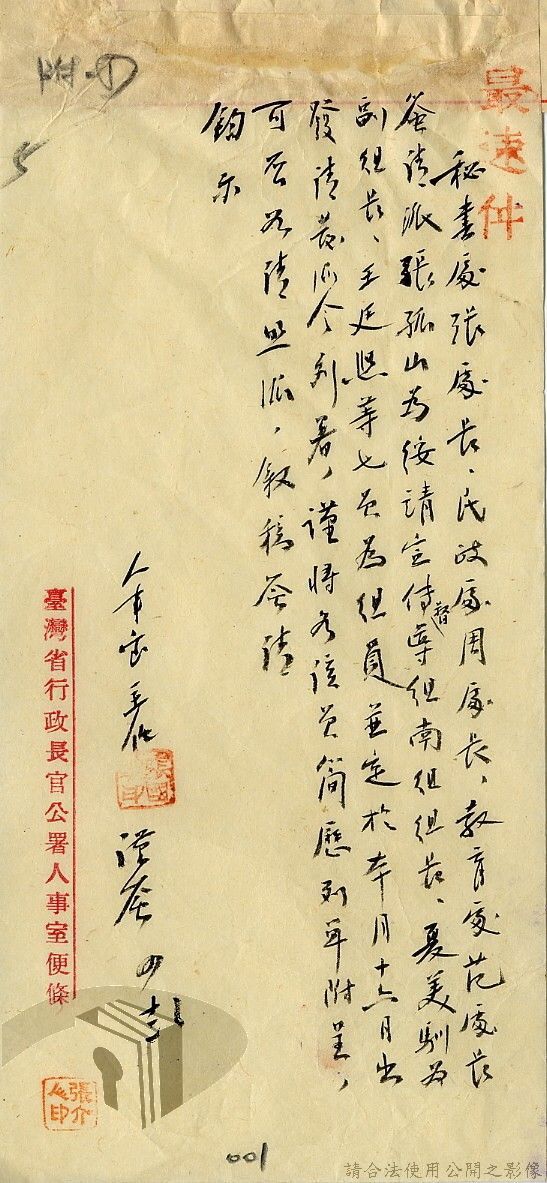 最速件
附(1)
5
秘書處張處長、民政處周處長、教育處范處長
簽請派張孤山為綏靖宣傳督導組南組組長、夏美馴為
副組長、王廷熙等七員為組員並定於本月十六日出
發請發派令到署，謹將各該員簡歷列單附呈，
可否如請照派，敘稿簽請
鈞示
人事室主任
謹簽
臺灣省行政長官公署人事室便條
張介人印
001
請合法使用公開之影像